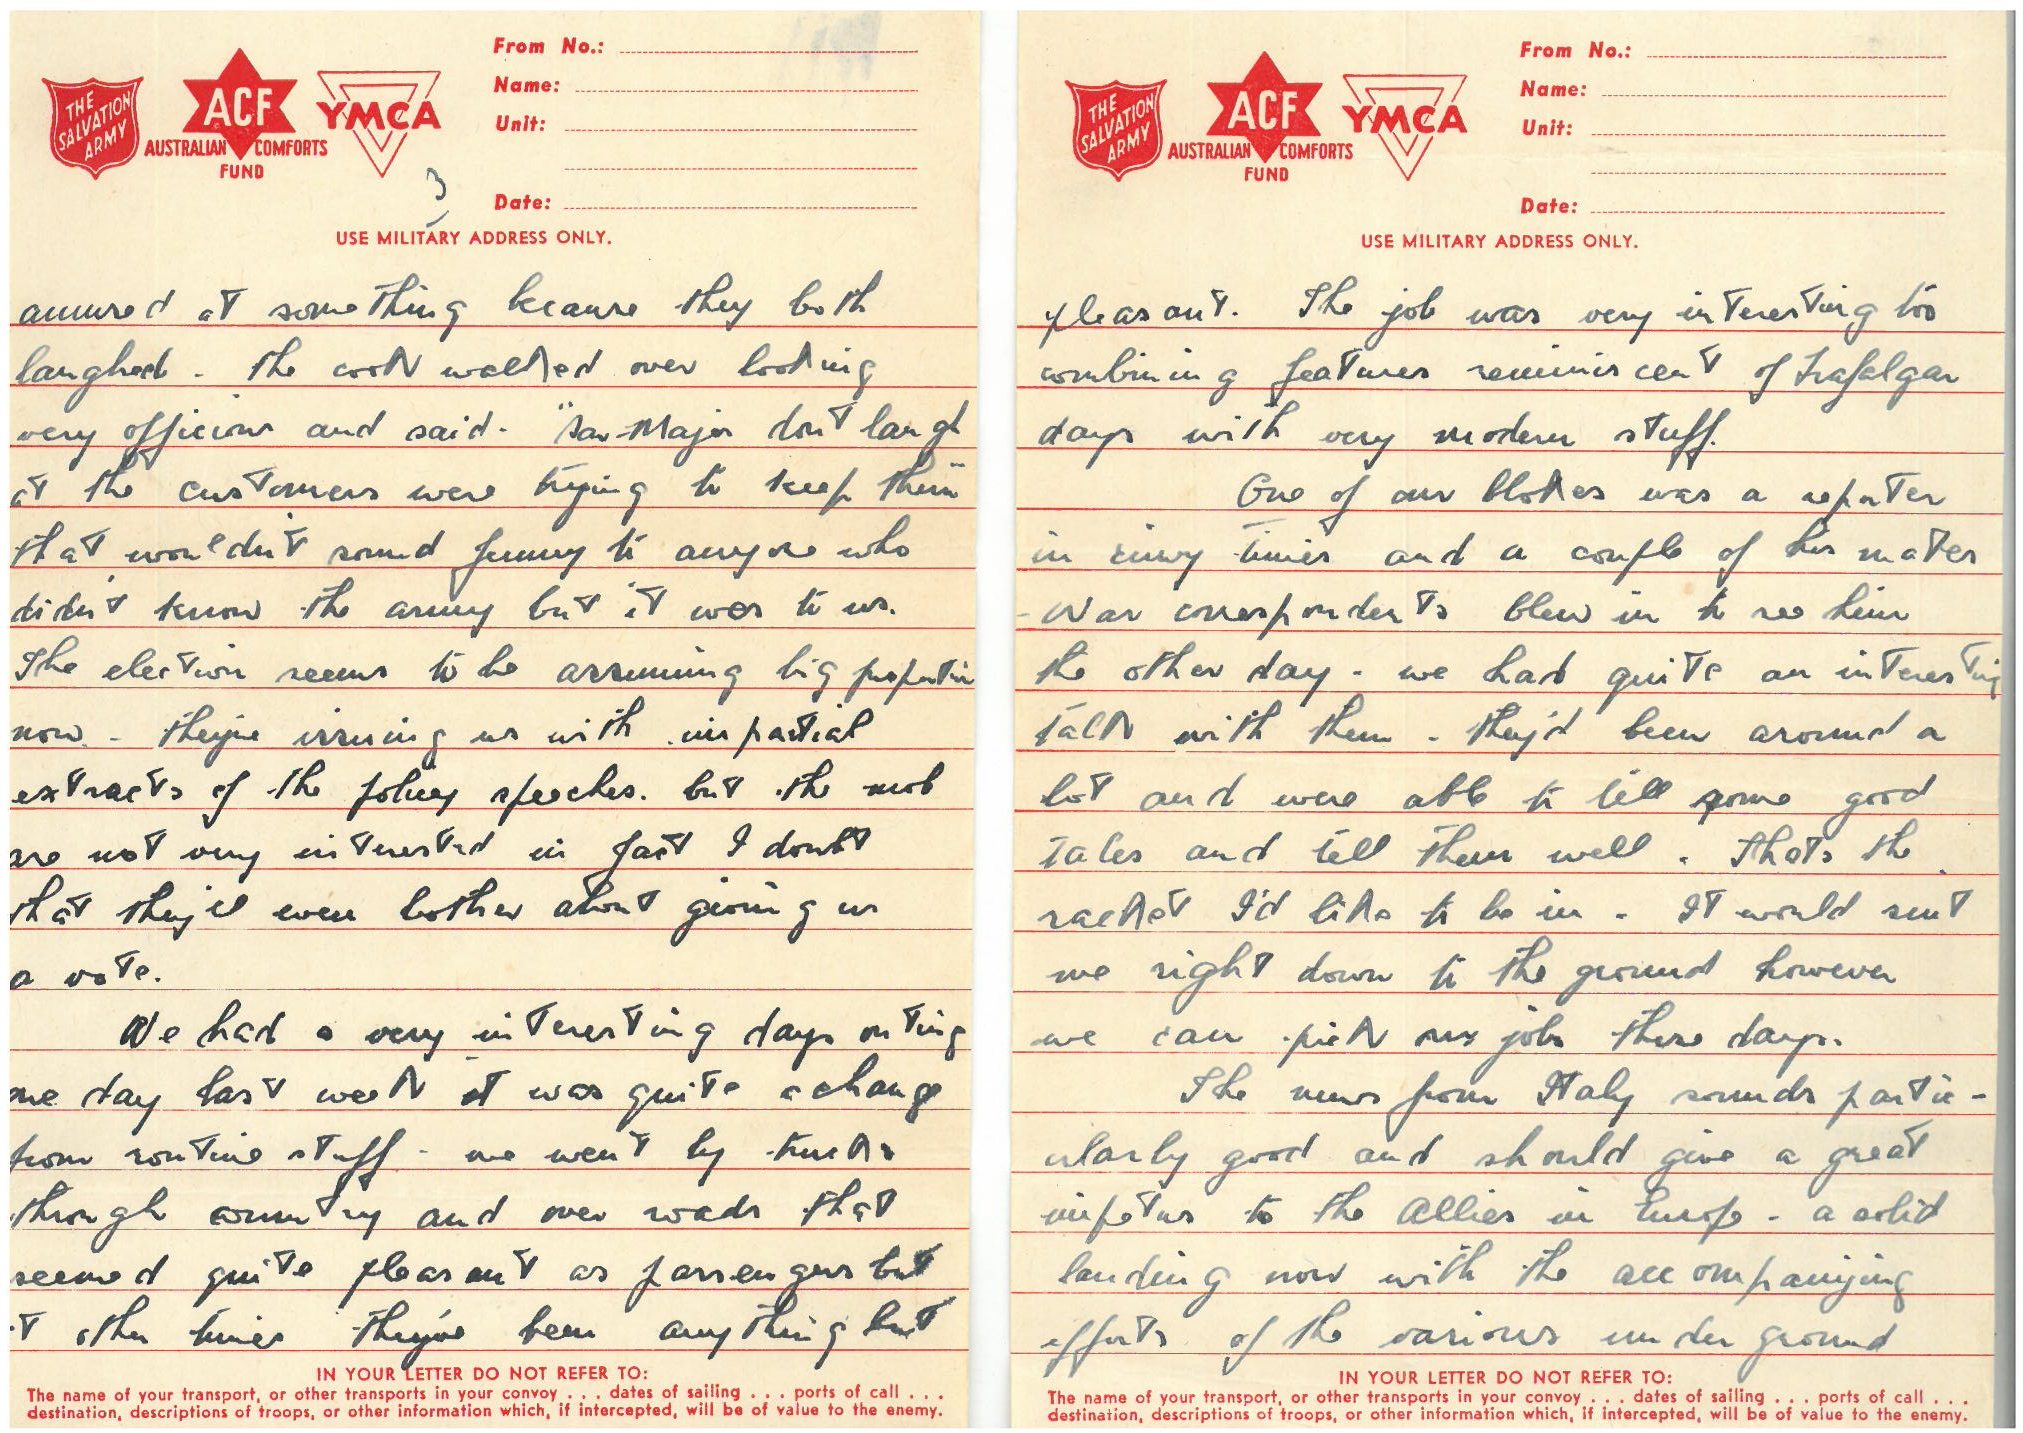 THE
SALVATION
ARMY
ACF
AUSTRALIAN COMFORTS
FUND
YMCA
From No.:
Name:
Unit:
Date:
3
USE MILITARY ADDRESS ONLY.
amused at something because they both
laughed - the cook walked over looking
very officious and said - "Sar-Major dont laugh
at the customers were trying to keep them"
that wouldn't sound funny to anyone who
didn't know the army but it was to us.
The election seems to be assuming big proportion
now. - they're issuing us with impartial
extracts of the policy speeches. but the mob
are not very interested in fact I doubt
that they'll even bother about giving us
a vote.
We had a very interesting days outing
one day last week it was quite a change
from routine stuff - we went by trucks
through country and over roads that
seemed quite pleasant as passengers but
at other times they've been anything but
IN YOUR LETTER DO NOT REFER TO:
The name of your transport, or other transports in your convoy . . . dates of sailing . . . ports of call . . .
destination, descriptions of troops, or other information which, if intercepted, will be of value to the enemy.
THE
SALVATION
ARMY
ACF
AUSTRALIAN COMFORTS
FUND
YMCA
From No.:
Name:
Unit:
Date:
USE MILITARY ADDRESS ONLY.
pleasant. The job was very interesting too
combining features reminiscent of Trafalgar
days with very modern stuff.
One of our blokes was a reporter
in civvy times and a couple of his mates
- War correspondents blew in to see him
the other day - we had quite an interesting
talk with them - they'd been around a
lot and were able to tell some good
tales and tell them well. Thats the
racket I'd like to be in - It would suit
me right down to the ground however
we can pick our jobs these days.
The news from Italy sounds partic-
ularly good and should give a great
impetus to the Allies in Europe - a solid
landing now with the accompanying
efforts of the various underground
IN YOUR LETTER DO NOT REFER TO:
The name of your transport, or other transports in your convoy . . . dates of sailing . . . ports of call . . .
destination, descriptions of troops, or other information which, if intercepted, will be of value to the enemy.